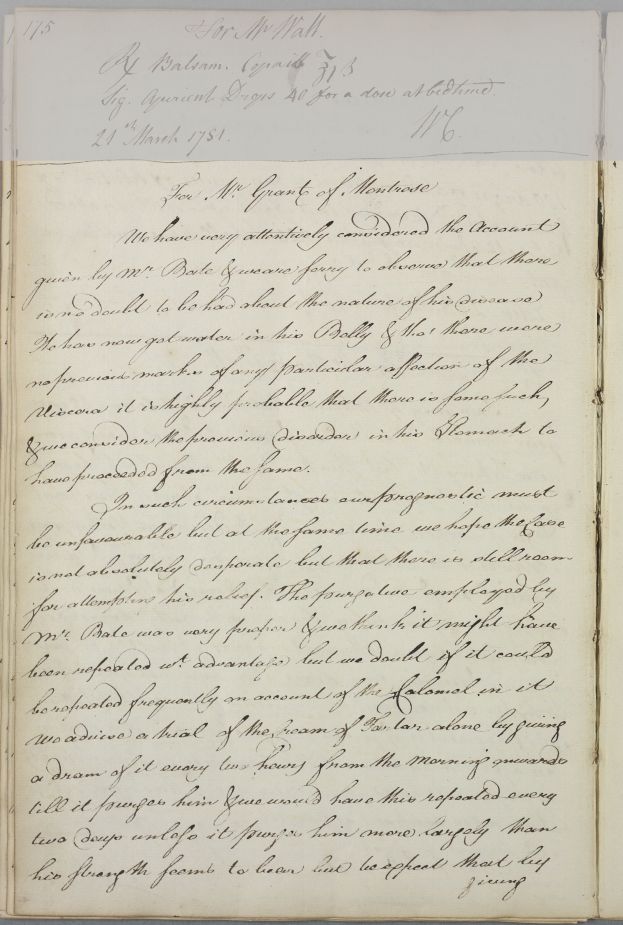 175
For Mr Wall.
℞ Balsam. Copaib ℥i ß
Sig. Apurient Drops 40 for a dose at bedtime
21st March 1781. WC.
For Mr. Grant of Montrose
We have very attentively considered the Account
given by Mr. Bate & we are sorry to observe that there
is no doubt to be had about the nature of his disease
He has now got water in his Belly & tho' there were
no previous marks of any particular affection of the
Viscera it is highly probable that there is some such,
& we consider the previous disorder in his Stomach to
have proceeded from the same.
In such circumstances our prognostic must
be unfavourable but at the same time we hope the Case
is not absolutely desperate but that there is still room
for attempting his relief. The purgative employed by
Mr. Bate was very proper & we think it might have
been repeated wt. advantage but we doubt if it could
be repeated frequently on account of the Calomel in it
We advise a trial of the Cream of Tartar alone by giving
a dram of it every two hours from the morning onwards
till it purges him & we would have this repeated every
two days unless it purges him more largely than
his strength seems to bear but we expect that by
giving